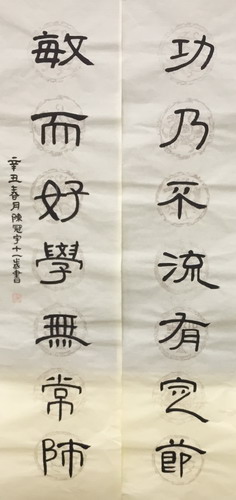 功乃不流有定節
敏而好學無常師
辛丑春月陳冠宇十一歲書